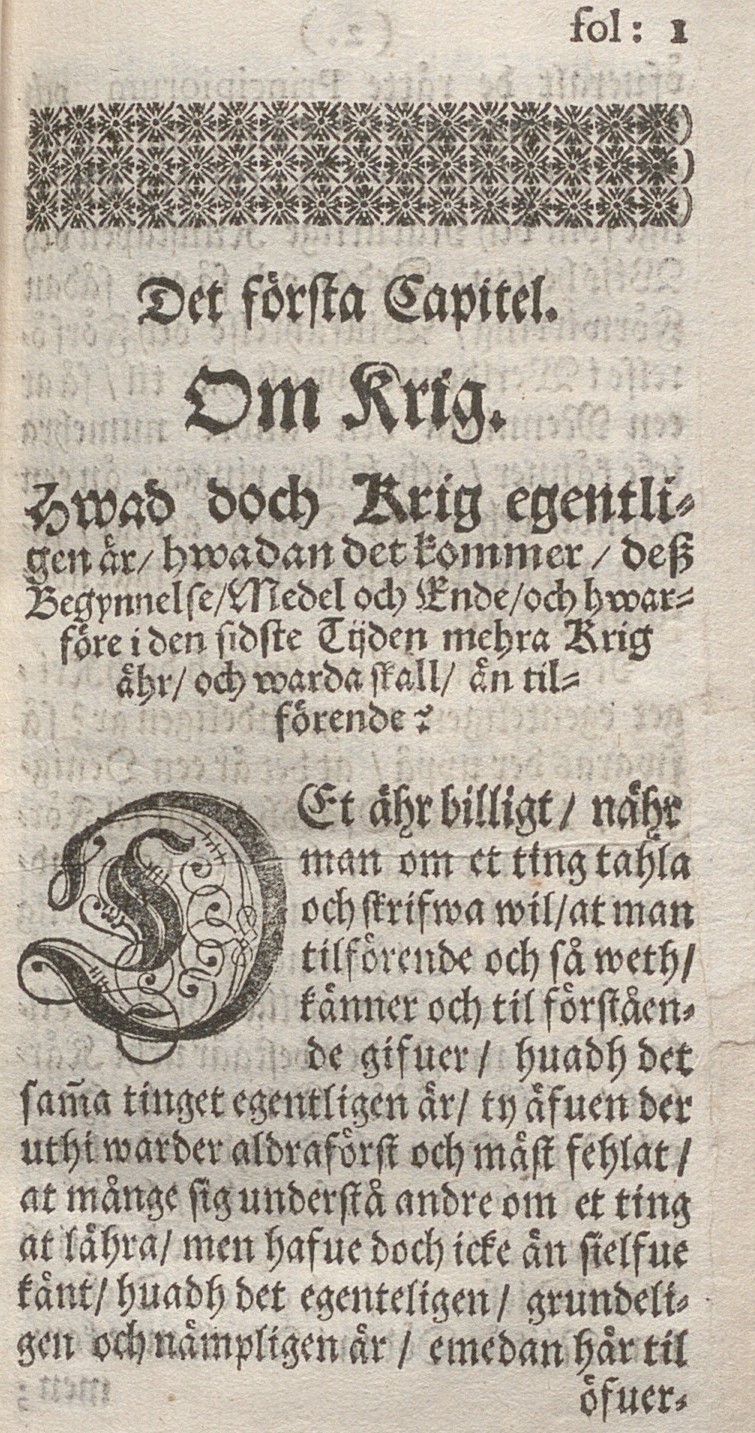 fol: 1
Det första Capitel.
Om Krig.
Hwad doch Krig egentli-
gen är/ hwadan det kommer / deß
Begynnelse/Medel och Ende/och hwar-
före i den sidste Tijden mehra Krig
ähr/ och warda skall/ än til-
förende?
DEt ähr billigt / nähr
man om et ting tahla
och skrifwa wil/at man
tilförende och så weth/
känner och til förståen-
de gifuer / huadh det
sam̃a tinget egentligen är/ ty äfuen der
uthi warder aldraförst och mäst fehlat /
at månge sig understå andre om et ting
at lähra/ men hafue doch icke än sielfue
känt/ huadh det egenteligen / grundeli-
gen och nämpligen är / emedan här til
öfuer-